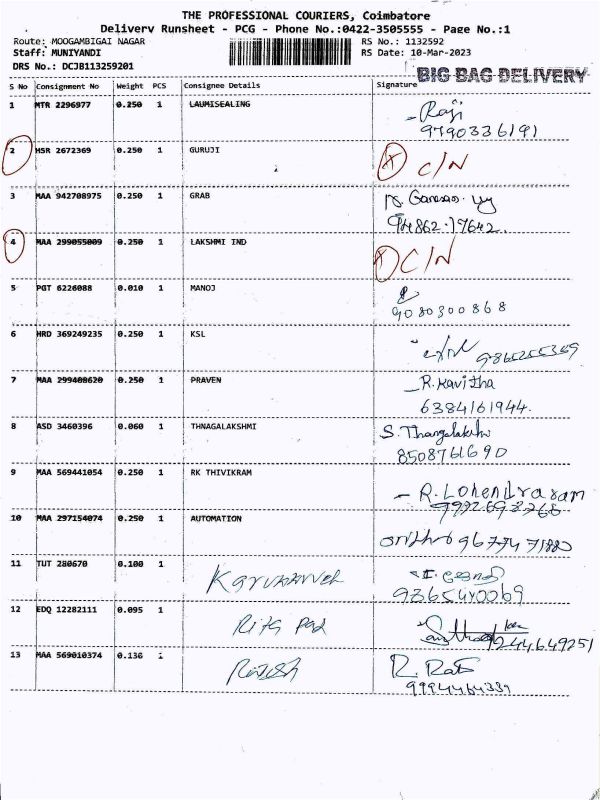 THE PROFESSIONAL COURIERS, Coimbatore
Delivery Runsheet - PCG - Phone No.:0422-3505555 - Page No.:1
Route: MOOGAMBIGAI NAGAR RS No.: 1132592
Staff: MUNIYANDI RS Date: 10-Mar-2023
DRS No.: DCJB113259201
BIG BAG DELIVERY
S No Consignment No Weight PCS Consignee Details Signature
1 MTR 2296977 0.250 1 LAUMISEALING Raji
9790336191
2 MSR 2672369 0.250 1 GURUJI X C/N
3 MAA 942708975 0.250 1 GRAB
94862-17642.
4 MAA 299055009 0.250 1 LAKSHMI IND X C/N
5 PGT 6226088 0.010 1 MANOJ
9080300868
6 HRD 369249235 0.250 1 KSL
7 MAA 299408620 0.250 1 PRAVEN R. Kavitha
6384161944.
8 ASD 3460396 0.060 1 THNAGALAKSHMI S. Thangalakshmi
8508761690
9 MAA 569441054 0.250 1 RK THIVIKRAM
10 MAA 297154074 0.250 1 AUTOMATION
11 TUT 280670 0.100 1
9865410069
12 EDQ 12282111 0.095 1
9244649251
13 MAA 569010374 0.136 1
9994464339